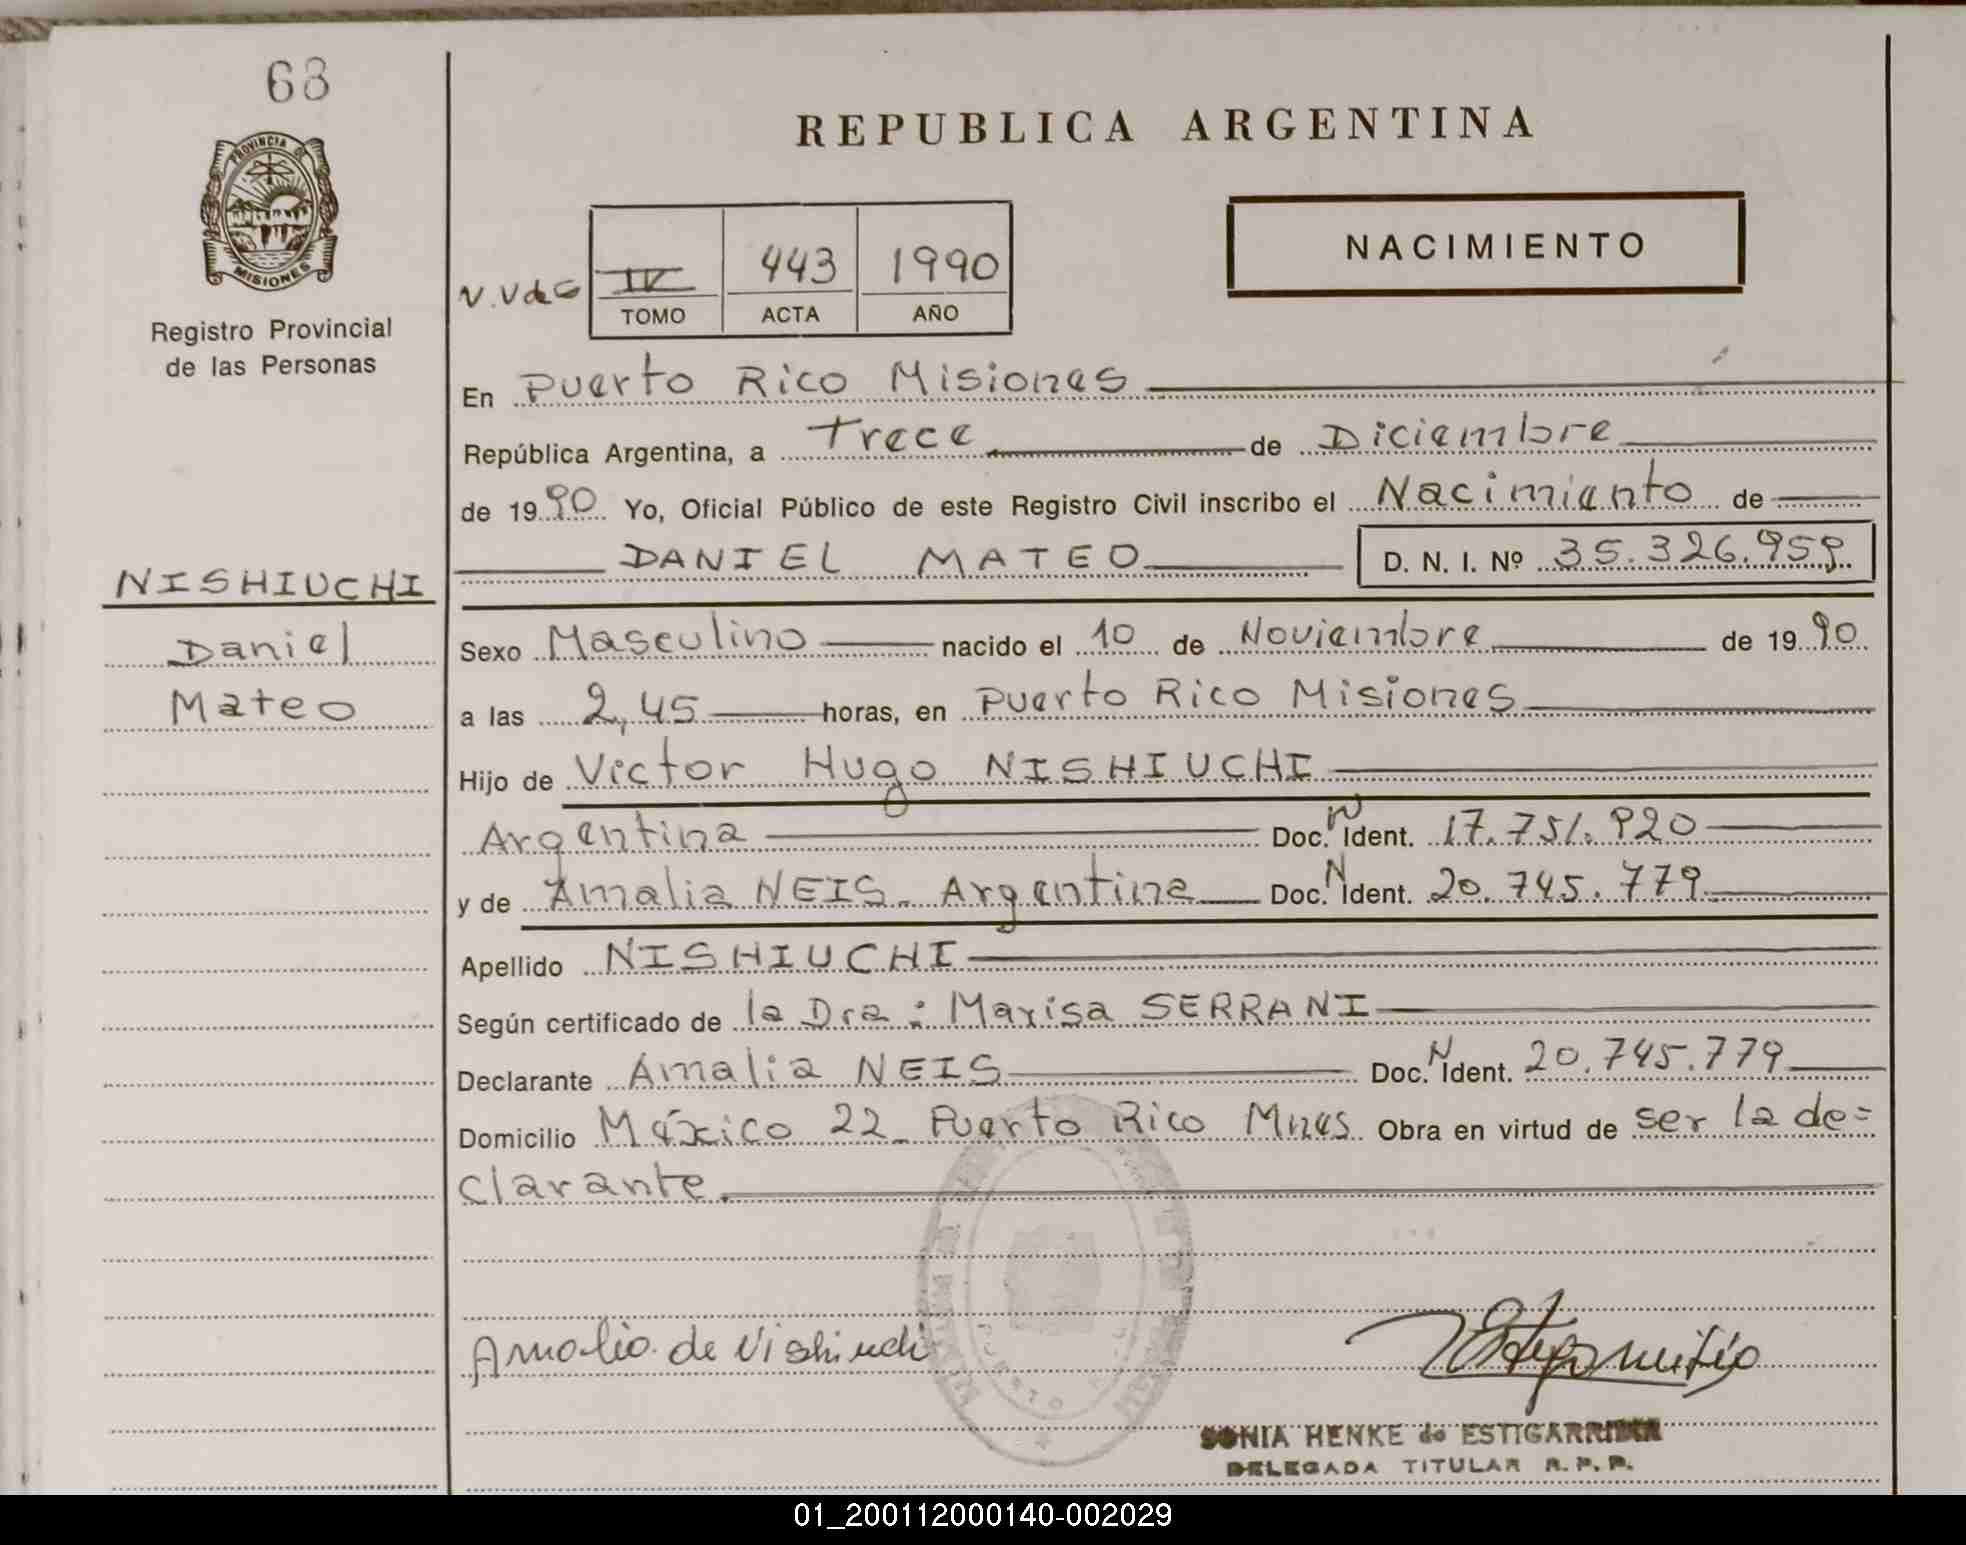 68
REPUBLICA ARGENTINA
PROVINCIA DE
MISIONES
Registro Provincial
de las Personas
IV 443 1990
TOMO ACTA AÑO
NACIMIENTO
En Puerto Rico Misiones
República Argentina, a Trece de Diciembre
de 1990 Yo, Oficial Público de este Registro Civil inscribo el Nacimiento de
DANIEL MATEO D. N. I. Nº 35.326.959
NISHIUCHI
Daniel
Mateo
Sexo Masculino nacido el 10 de Noviembre de 1990
a las 2,45 horas, en Puerto Rico Misiones
Hijo de Victor Hugo NISHIUCHI
Argentina Doc. N Ident. 17.751.920
y de Amalia NEIS. Argentina Doc. N Ident. 20.745.779
Apellido NISHIUCHI
Según certificado de la Dra: Marisa SERRANI
Declarante Amalia NEIS Doc. N Ident. 20.745.779
Domicilio México 22 Puerto Rico Mnes Obra en virtud de ser la de=
clarante.
Amalia de Nishiuchi
SONIA HENKE de ESTIGARRIBIA
DELEGADA TITULAR R. P. P.
01_200112000140-002029